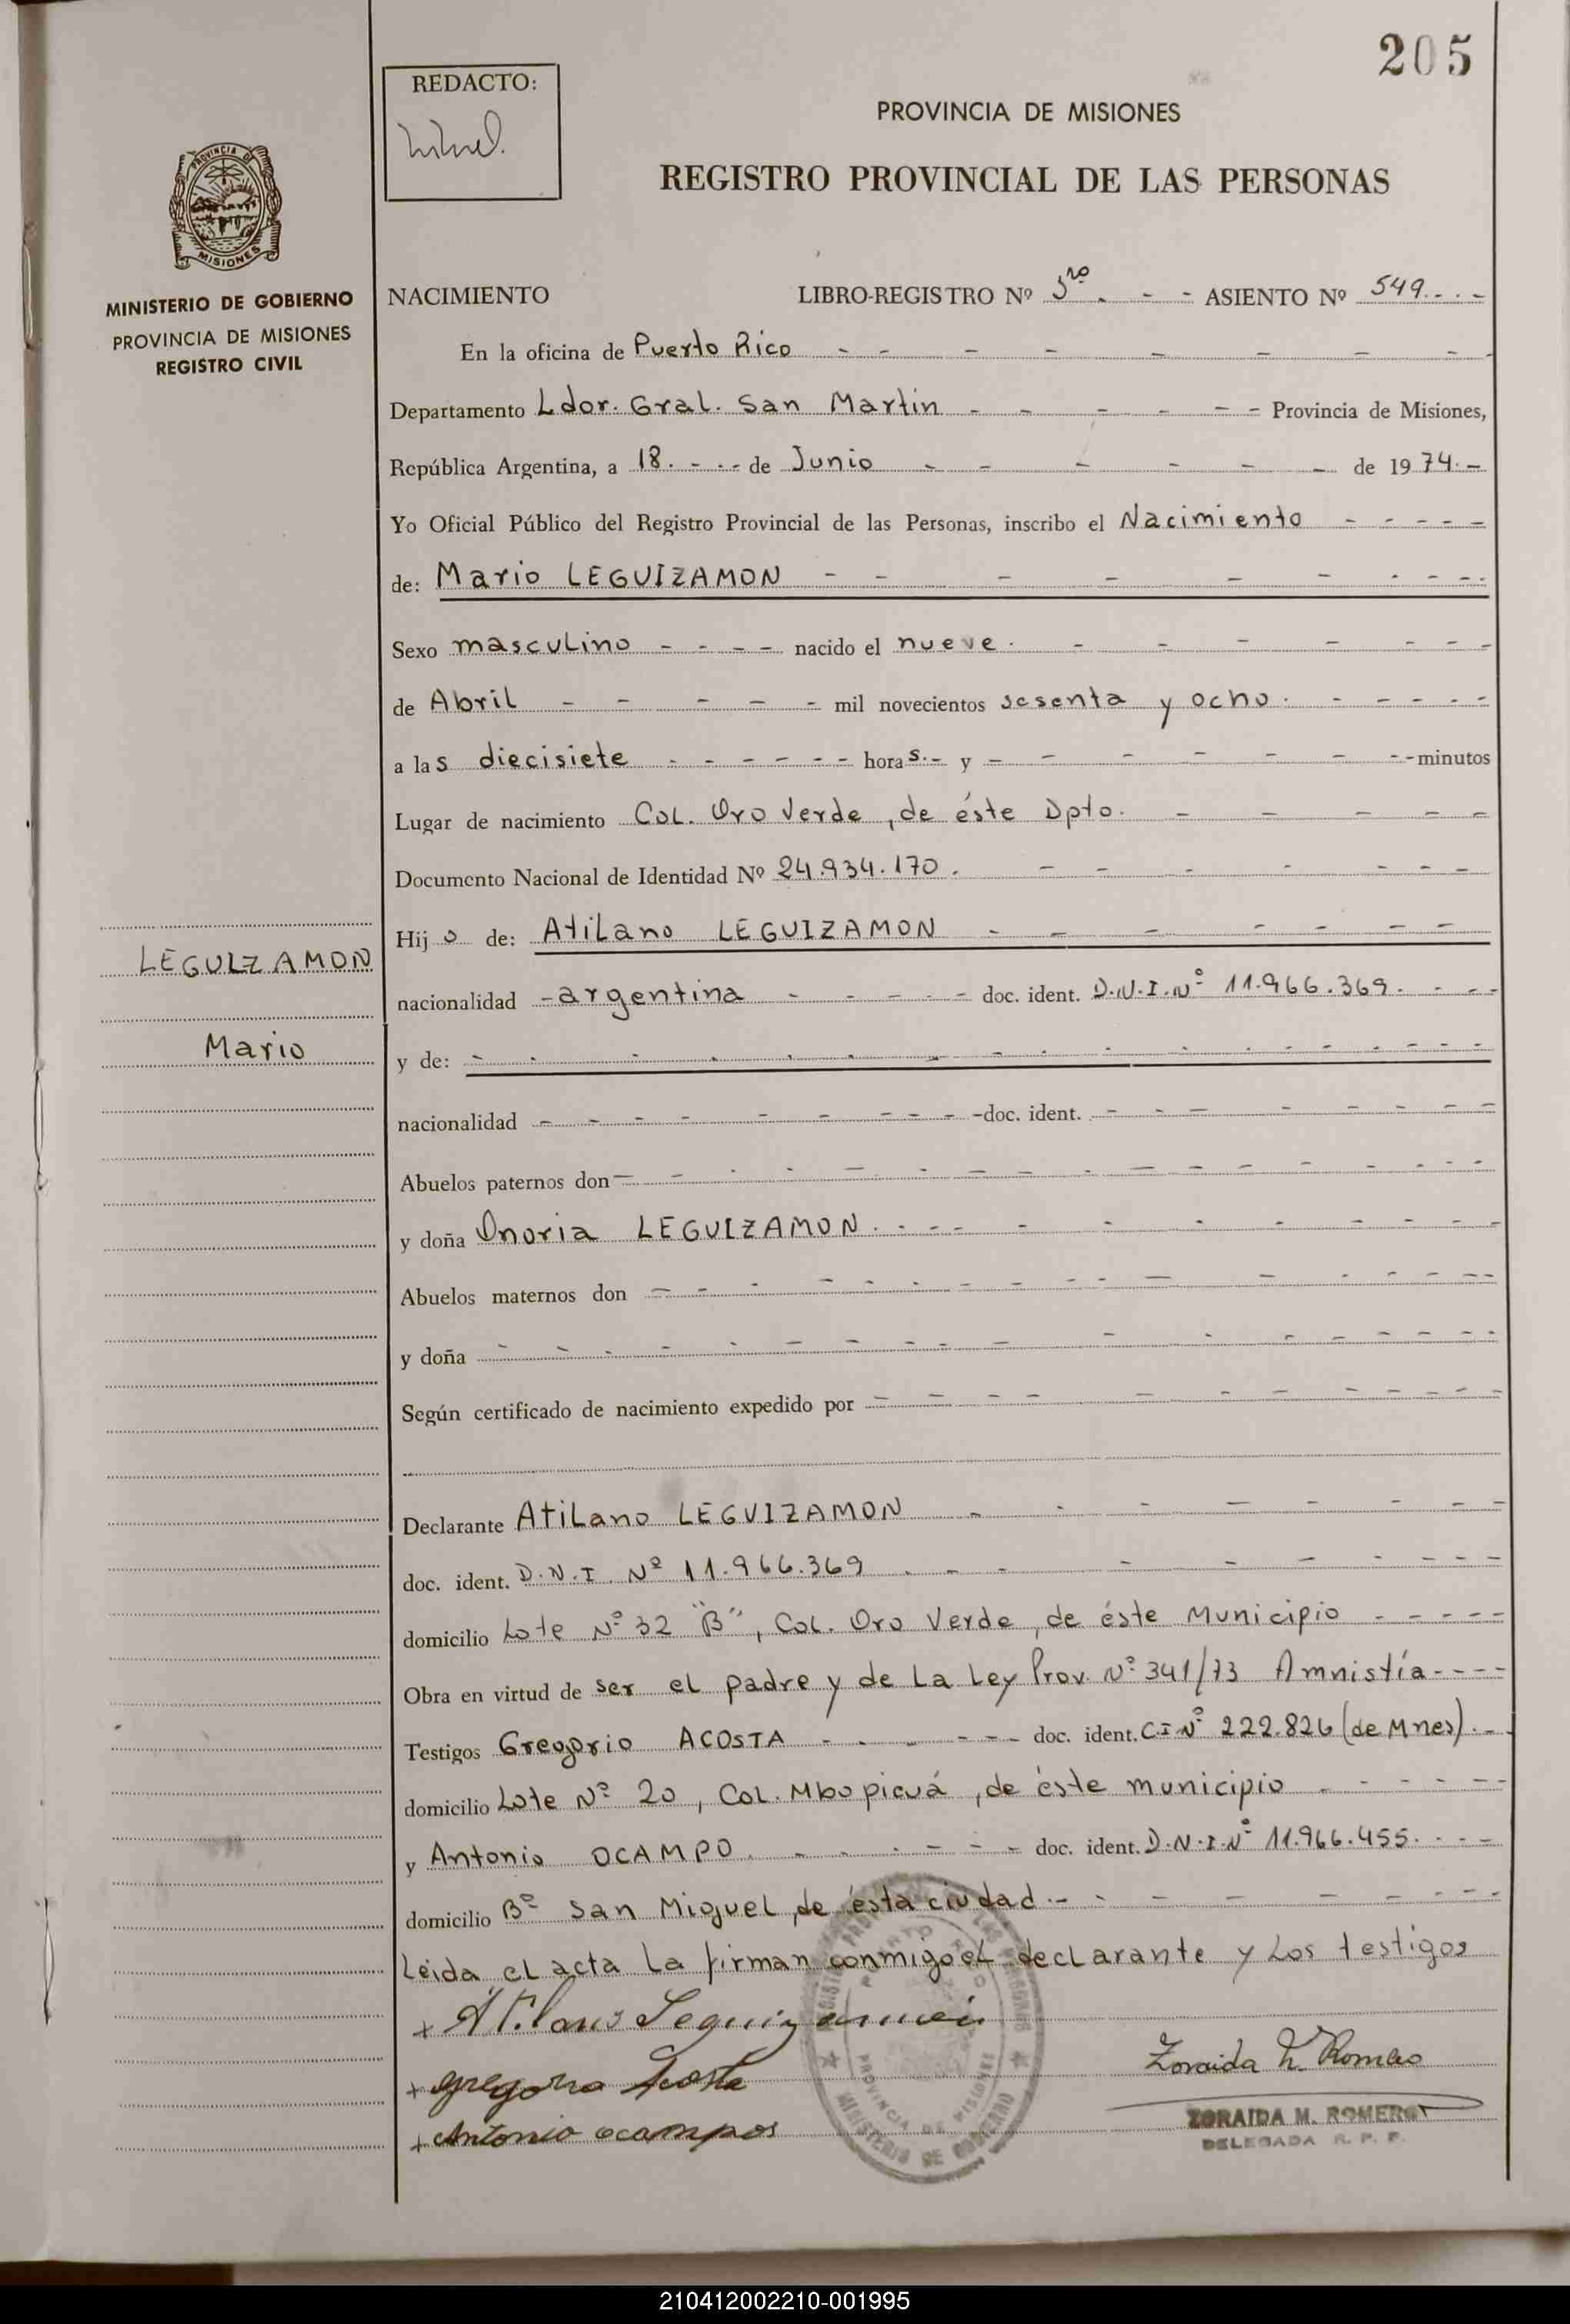 205
REDACTO:
PROVINCIA DE MISIONES
REGISTRO PROVINCIAL DE LAS PERSONAS
PROVINCIA DE
MISIONES
MINISTERIO DE GOBIERNO
PROVINCIA DE MISIONES
REGISTRO CIVIL
NACIMIENTO LIBRO-REGISTRO Nº 3ro. - - ASIENTO Nº 549. - . -
En la oficina de Puerto Rico - - - - - - - -
Departamento Ldor. Gral. San Martin - - - - - - Provincia de Misiones,
República Argentina, a 18. - . - de Junio - - - - - - de 1974. -
Yo Oficial Público del Registro Provincial de las Personas, inscribo el Nacimiento - - - - -
de: Mario LEGUIZAMON - - - - - - - - - -
Sexo masculino - - - - nacido el nueve. - - - - - - -
de Abril - - - - - mil novecientos sesenta y ocho. - - - - -
a las diecisiete - - - - - - - horas. - y - - - - - - - - minutos
Lugar de nacimiento Col. Oro Verde, de éste Dpto. - - - - -
Documento Nacional de Identidad Nº 24.934.170. - - - - - - -
Hijo de: Atilano LEGUIZAMON - - - - - - -
LEGUIZAMON
nacionalidad - argentina - - - - - doc. ident. D.N.I. Nº 11.966.369. - - -
Mario
y de: - - - - - - - - - - - - - - -
nacionalidad - - - - - - - - - - doc. ident. - - - - - - - -
Abuelos paternos don - - - - - - - - - - - - - - -
y doña Onoria LEGUIZAMON. - - - - - - - - - -
Abuelos maternos don - - - - - - - - - - - - - - -
y doña - - - - - - - - - - - - - - -
Según certificado de nacimiento expedido por - - - - - - - - - - -
Declarante Atilano LEGUIZAMON - - - - - - -
doc. ident. D.N.I. Nº 11.966.369 . - - - - - - - -
domicilio Lote Nº 32 "B", Col. Oro Verde, de éste Municipio - - - - -
Obra en virtud de ser el padre y de La Ley Prov. Nº 341/73 Amnistía - - - -
Testigos Gregorio ACOSTA - - - - - - doc. ident. C.I Nº 222.826 (de Mnes). -
domicilio Lote Nº 20, Col. Mbopicuá, de éste municipio - - - - -
y Antonio OCAMPO. - - - - - doc. ident. D.N.I. Nº 11.966.455. - - -
domicilio Bº San Miguel, de ésta ciudad. - - - - - - - -
Leida el acta La firman conmigo el declarante y Los testigos
+ Atilano Leguizamón
+ gregorio Acosta
Zoraida M. Romero
+ Antonio ocampos
ZORAIDA M. ROMERO
DELEGADA R. P. P.
PUERTO RICO
PROVINCIA DE MISIONES
MINISTERIO DE GOBIERNO
210412002210-001995